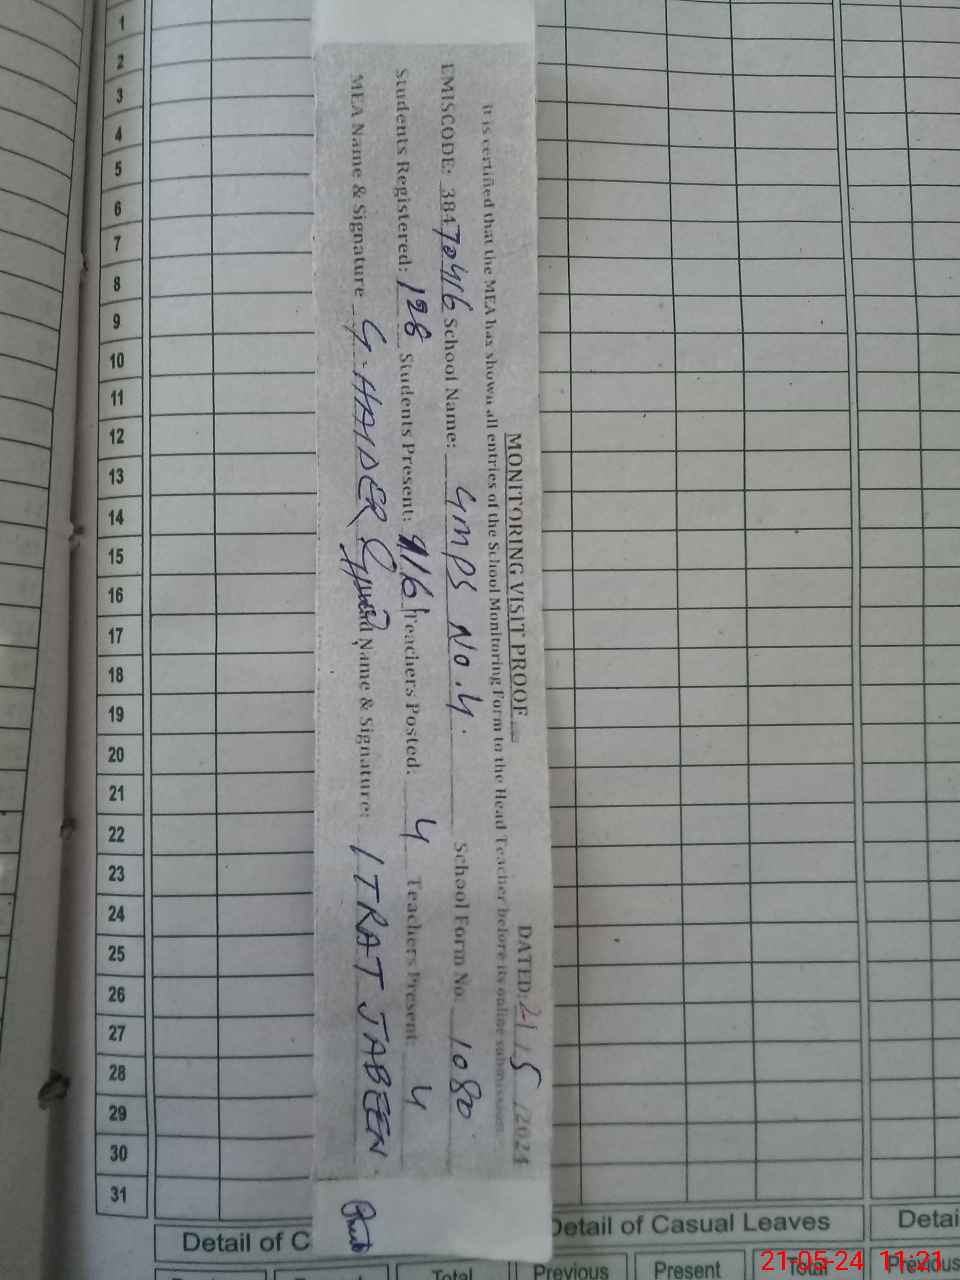 MONITORING VISIT PROOF
DATED: 21/5/2024
It is certified that the MEA has shown all entries of the School Monitoring Form to the Head Teacher before its online submission.
EMISCODE: 38470416 School Name: GMPS No.4. School Form No. 1080
Students Registered: 128 Students Present: 116 Teachers Posted: 4 Teachers Present: 4
MEA Name & Signature G.HAIDER Name & Signature: ITRAT JABEEN
1
2
3
4
5
6
7
8
9
10
11
12
13
14
15
16
17
18
19
20
21
22
23
24
25
26
27
28
29
30
31
Detail of C
Detail of Casual Leaves
Detai
Total
Previous
Present
Total
Previous
21-05-24 11:21